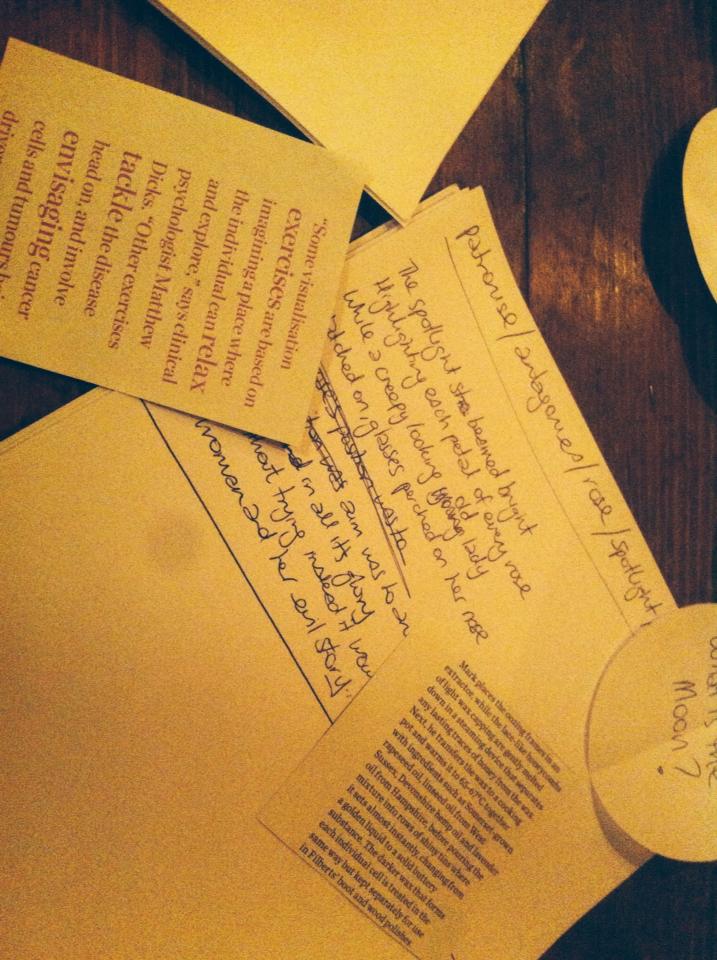 "Some visualisation
exercises are based on
imagining a place where
the individual can relax
and explore," says clinical
psychologist Matthew
Dicks. "Other exercises
tackle the disease
head on, and involve
envisaging cancer
cells and tumours
patronise/antagonises/rose/spotlight
The spotlight beamed bright
Highlighting each petal of every rose
While a creepy looking old lady
on, glasses perched on her nose
position was to
aim was to
in all its glory
trying instead it
woman and her evil story.
Mark places the oozing frames in an
extractor, while the lace-like honeycombs
of light wax capping are gently melted
down in a steaming device that separates
any lasting traces of honey from the wax.
Next, he transfers the wax to a cooking
pot and warms it to 65-67°C, together
with ingredients such as Somerset-grown
rapeseed oil, linseed oil from West
Sussex, Devonshire hemp oil and lavender
oil from Hampshire, before pouring the
mixture into rows of shiny tins where
it sets almost instantly, changing from
a golden liquid to a solid buttery
substance. The darker wax that forms
each individual cell is treated in the
same way but kept separately for use
in Filberts' boot and wood polishes.
what is the
Moon?